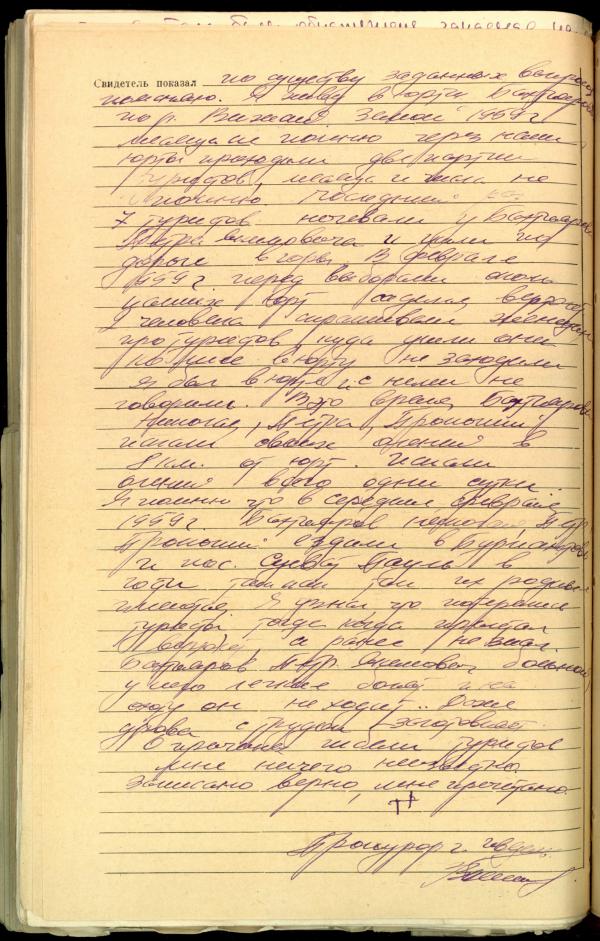 Свидетель показал по существу заданных вопросов
поясняю. Я живу в юрте Бахтиярова
по р. Вижай. Зимой 1959 г.
месяца не помню через наши
юрты проходили две партии
туристов, месяца и числа не
помню. Последний раз
7 туристов ночевали у Бахтиярова
Петра Якимовича и ушли по
дороге в горы. В феврале
1959 г. перед выборами около
наших юрт ездили верхом
2 человека спрашивали женщин
про туристов, куда ушли они
но уже в юрту не заходили
Я был в юрте и с ними не
говорили. В это время Бахтияровы
Николай, Петра, Прокопий
искали своих оленей в
8 км. от юрт. Искали
оленей всего одни сутки.
Я помню что в середине февраля
1959 г. Бахтияров Николай, Петр
Прокопий ездили в Бурмантово
и пос. Суеват Пауль в
гости там
имеются. Я узнал, что потерялись
туристы тогда когда
а ранее не знал.
Бахтияров Петр Якимович больной,
у него легкие болят и на
охоту он не ходит. Даже
дрова с трудом заготовляет.
О причине гибели туристов
мне ничего неизвестно.
Записано верно, мне прочитано.
Прокурор г. Ивдель